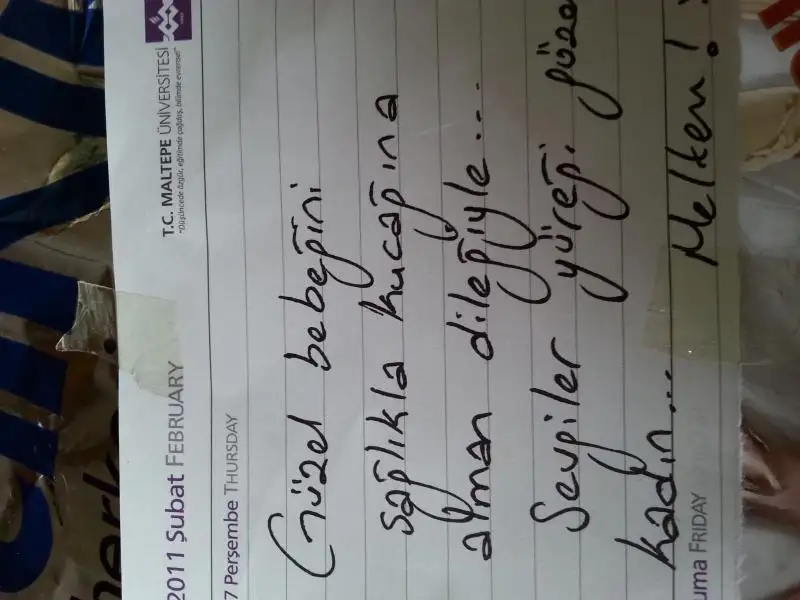 T.C. MALTEPE ÜNİVERSİTESİ
"Düşüncede özgür, eğitimde çağdaş, bilimde evrensel"
2011 Şubat FEBRUARY
7 Perşembe THURSDAY
Güzel bebeğini
sağlıkla kucağına
alman dileğiyle...
Sevgiler yüreği güze
kadın...
Melken!
uma FRIDAY